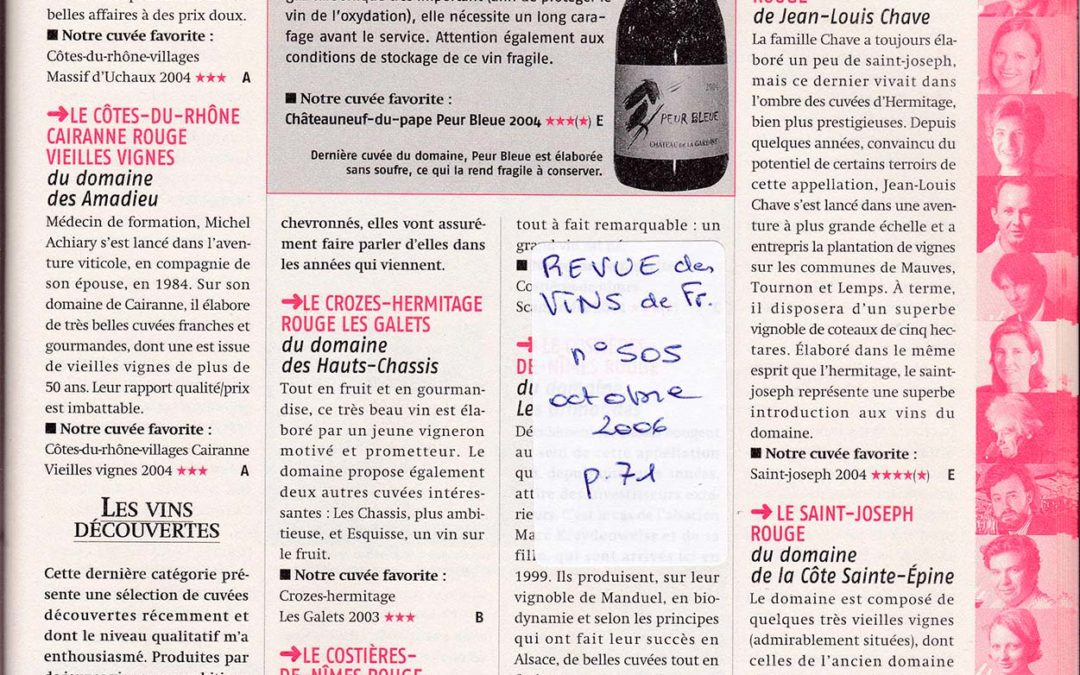 belles affaires à des prix doux.
■ Notre cuvée favorite :
Côtes-du-rhône-villages
Massif d'Uchaux 2004 ★★★ A
➔LE CÔTES-DU-RHÔNE
CAIRANNE ROUGE
VIEILLES VIGNES
du domaine
des Amadieu
Médecin de formation, Michel
Achiary s'est lancé dans l'aven-
ture viticole, en compagnie de
son épouse, en 1984. Sur son
domaine de Cairanne, il élabore
de très belles cuvées franches et
gourmandes, dont une est issue
de vieilles vignes de plus de
50 ans. Leur rapport qualité/prix
est imbattable.
■ Notre cuvée favorite :
Côtes-du-rhône-villages Cairanne
Vieilles vignes 2004 ★★★ A
LES VINS
DÉCOUVERTES
Cette dernière catégorie pré-
sente une sélection de cuvées
découvertes récemment et
dont le niveau qualitatif m'a
enthousiasmé. Produites par
vin de l'oxydation), elle nécessite un long cara-
fage avant le service. Attention également aux
conditions de stockage de ce vin fragile.
■ Notre cuvée favorite :
Châteauneuf-du-pape Peur Bleue 2004 ★★★(★) E
Dernière cuvée du domaine, Peur Bleue est élaborée
sans soufre, ce qui la rend fragile à conserver.
2004
PEUR BLEUE
CHATEAU DE LA
chevronnés, elles vont assuré-
ment faire parler d'elles dans
les années qui viennent.
➔LE CROZES-HERMITAGE
ROUGE LES GALETS
du domaine
des Hauts-Chassis
Tout en fruit et en gourman-
dise, ce très beau vin est éla-
boré par un jeune vigneron
motivé et prometteur. Le
domaine propose également
deux autres cuvées intéres-
santes : Les Chassis, plus ambi-
tieuse, et Esquisse, un vin sur
le fruit.
■ Notre cuvée favorite :
Crozes-hermitage
Les Galets 2003 ★★★ B
➔LE COSTIÈRES-
DE-NÎMES ROUGE
tout à fait remarquable : un
REVUE des
VINS de Fr.
n° 505
octobre
2006
p. 71
1999. Ils produisent, sur leur
vignoble de Manduel, en bio-
dynamie et selon les principes
qui ont fait leur succès en
Alsace, de belles cuvées tout en
ROUGE
de Jean-Louis Chave
La famille Chave a toujours éla-
boré un peu de saint-joseph,
mais ce dernier vivait dans
l'ombre des cuvées d'Hermitage,
bien plus prestigieuses. Depuis
quelques années, convaincu du
potentiel de certains terroirs de
cette appellation, Jean-Louis
Chave s'est lancé dans une aven-
ture à plus grande échelle et a
entrepris la plantation de vignes
sur les communes de Mauves,
Tournon et Lemps. À terme,
il disposera d'un superbe
vignoble de coteaux de cinq hec-
tares. Élaboré dans le même
esprit que l'hermitage, le saint-
joseph représente une superbe
introduction aux vins du
domaine.
■ Notre cuvée favorite :
Saint-joseph 2004 ★★★★(★) E
➔ LE SAINT-JOSEPH
ROUGE
du domaine
de la Côte Sainte-Épine
Le domaine est composé de
quelques très vieilles vignes
(admirablement situées), dont
celles de l'ancien domaine